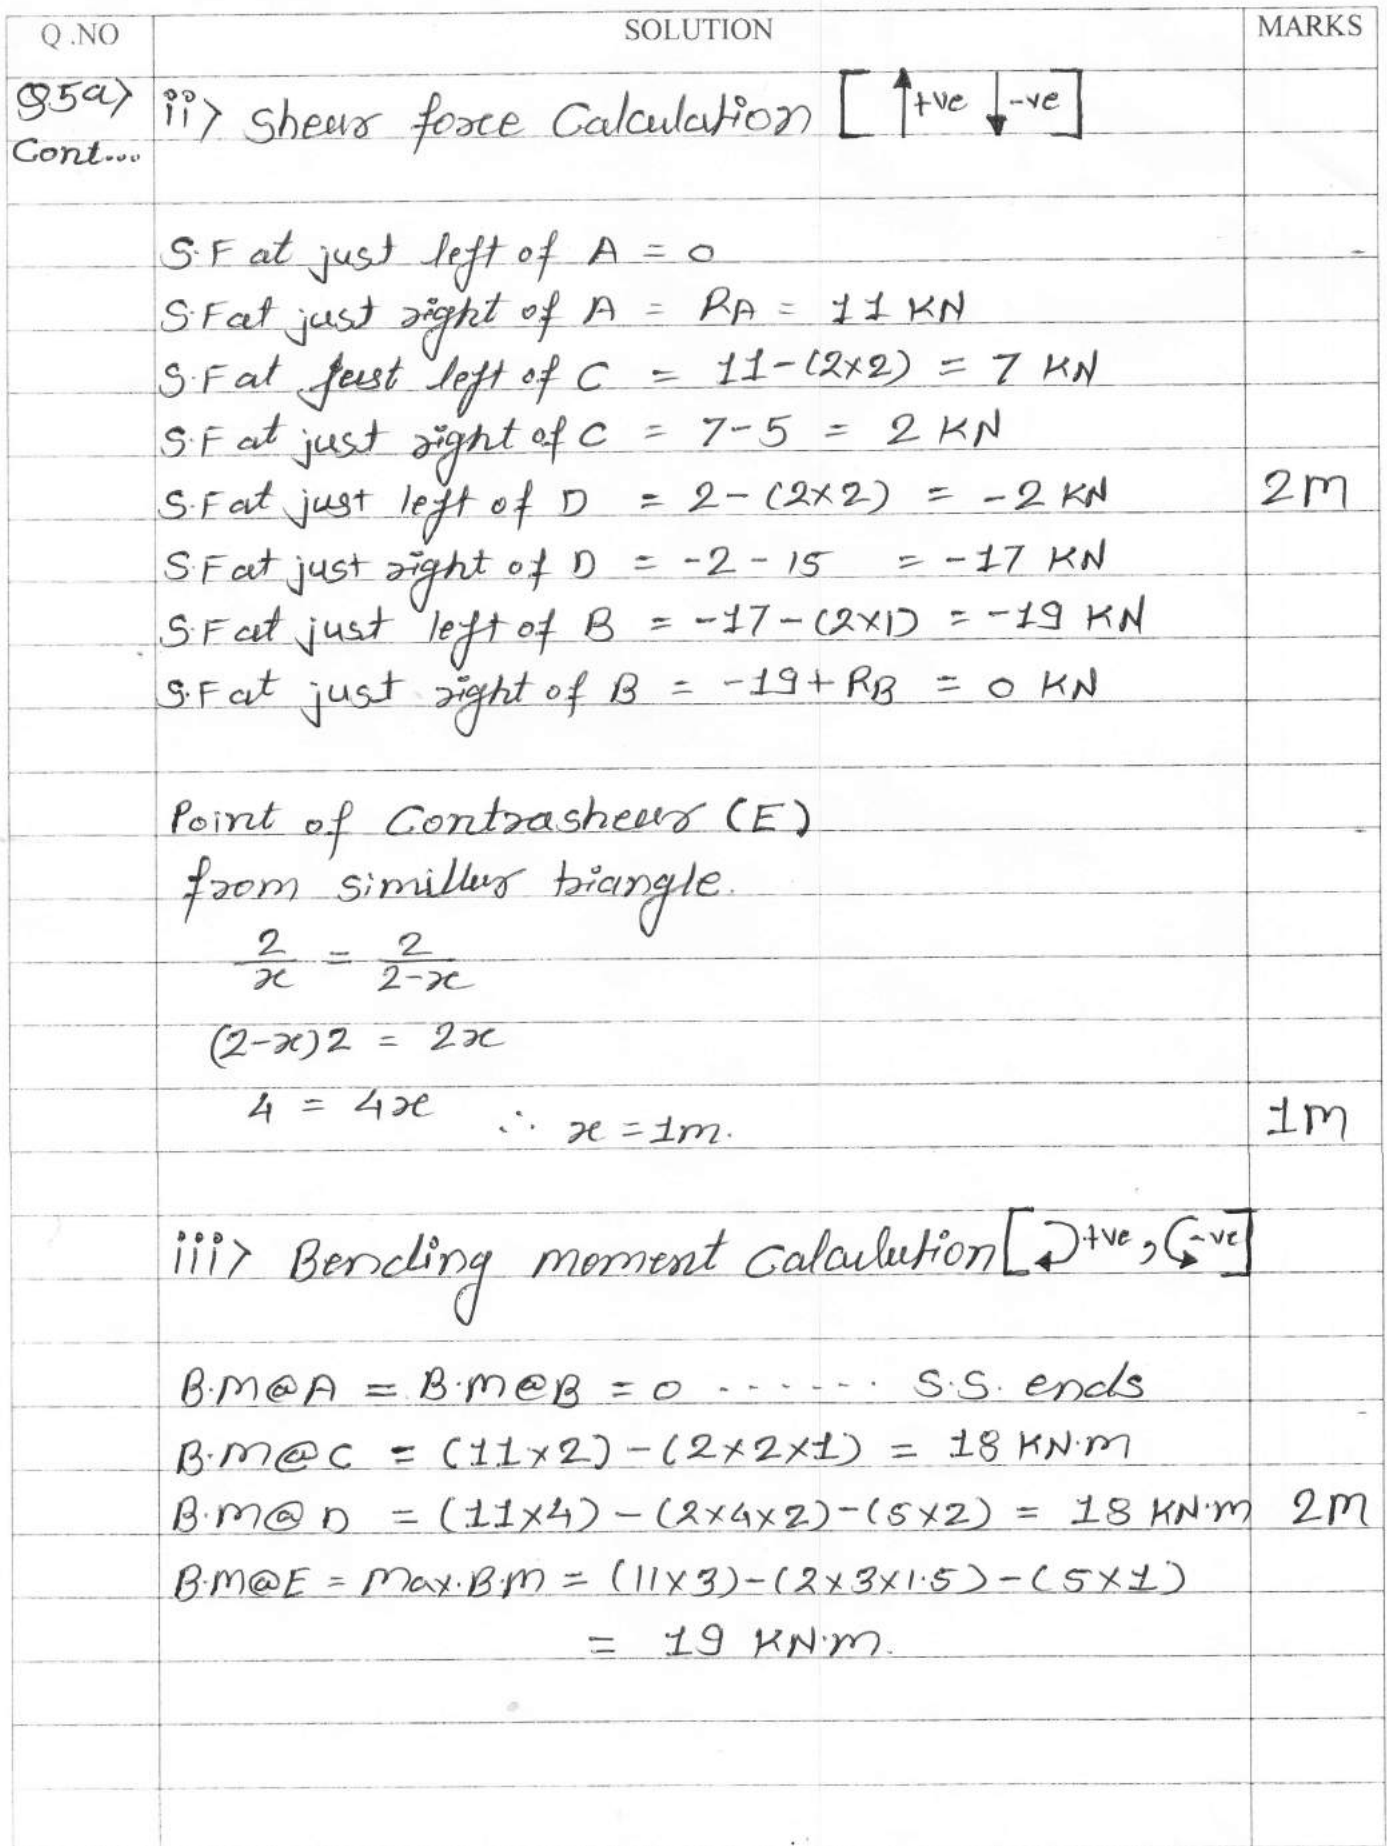 Q .NO SOLUTION MARKS
Q5a) ii> Shear force Calculation [ ↑+ve ↓-ve ]
Cont...
S.F at just left of A = 0
S.F at just right of A = RA = 11 KN
S.F at just left of C = 11-(2×2) = 7 KN
S.F at just right of C = 7-5 = 2 KN
S.F at just left of D = 2-(2×2) = -2 KN 2m
S.F at just right of D = -2-15 = -17 KN
S.F at just left of B = -17-(2×1) = -19 KN
S.F at just right of B = -19+RB = 0 KN
Point of Contrashear (E)
from simillar triangle.
2/x = 2/2-x
(2-x)2 = 2x
4 = 4x ∴ x = 1m. 1m
iii> Bending moment Calculation [ ⤸+ve, ⤹-ve ]
B.M@A = B.M@B = 0 ------- S.S. ends
B.M@C = (11×2)-(2×2×1) = 18 KN.m
B.M@D = (11×4)-(2×4×2)-(5×2) = 18 KN.m 2m
B.M@E = Max.B.M = (11×3)-(2×3×1.5)-(5×1)
= 19 KN.m.